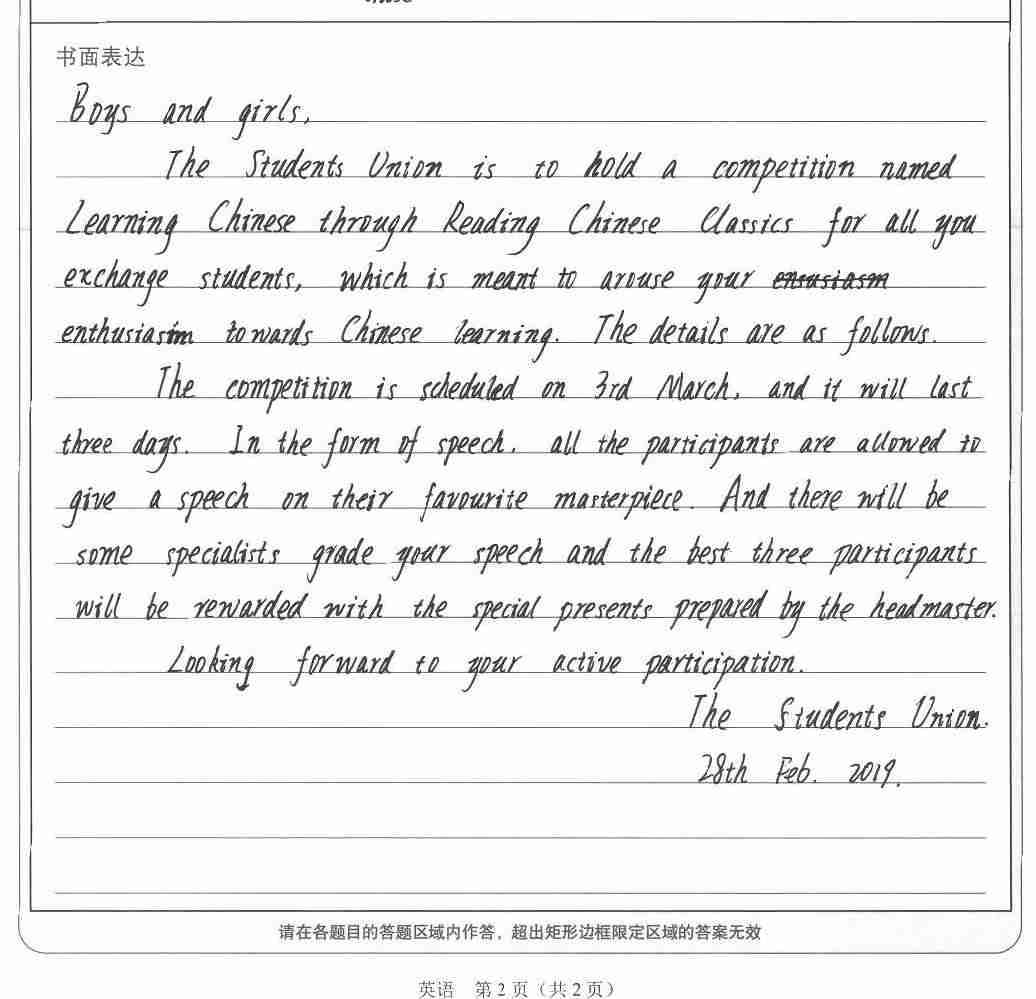 书面表达
Boys and girls,
The Students Union is to hold a competition named
Learning Chinese through Reading Chinese Classics for all you
exchange students, which is meant to arouse your ensusiasm
enthusiasim towards Chinese learning. The details are as follows.
The competition is scheduled on 3rd March, and it will last
three days. In the form of speech, all the participants are allowed to
give a speech on their favourite masterpiece. And there will be
some specialists grade your speech and the best three participants
will be rewarded with the special presents prepared by the headmaster.
Looking forward to your active participation.
The Students Union.
28th Feb. 2019.
请在各题目的答题区域内作答，超出矩形边框限定区域的答案无效
英语 第 2 页（共 2 页）